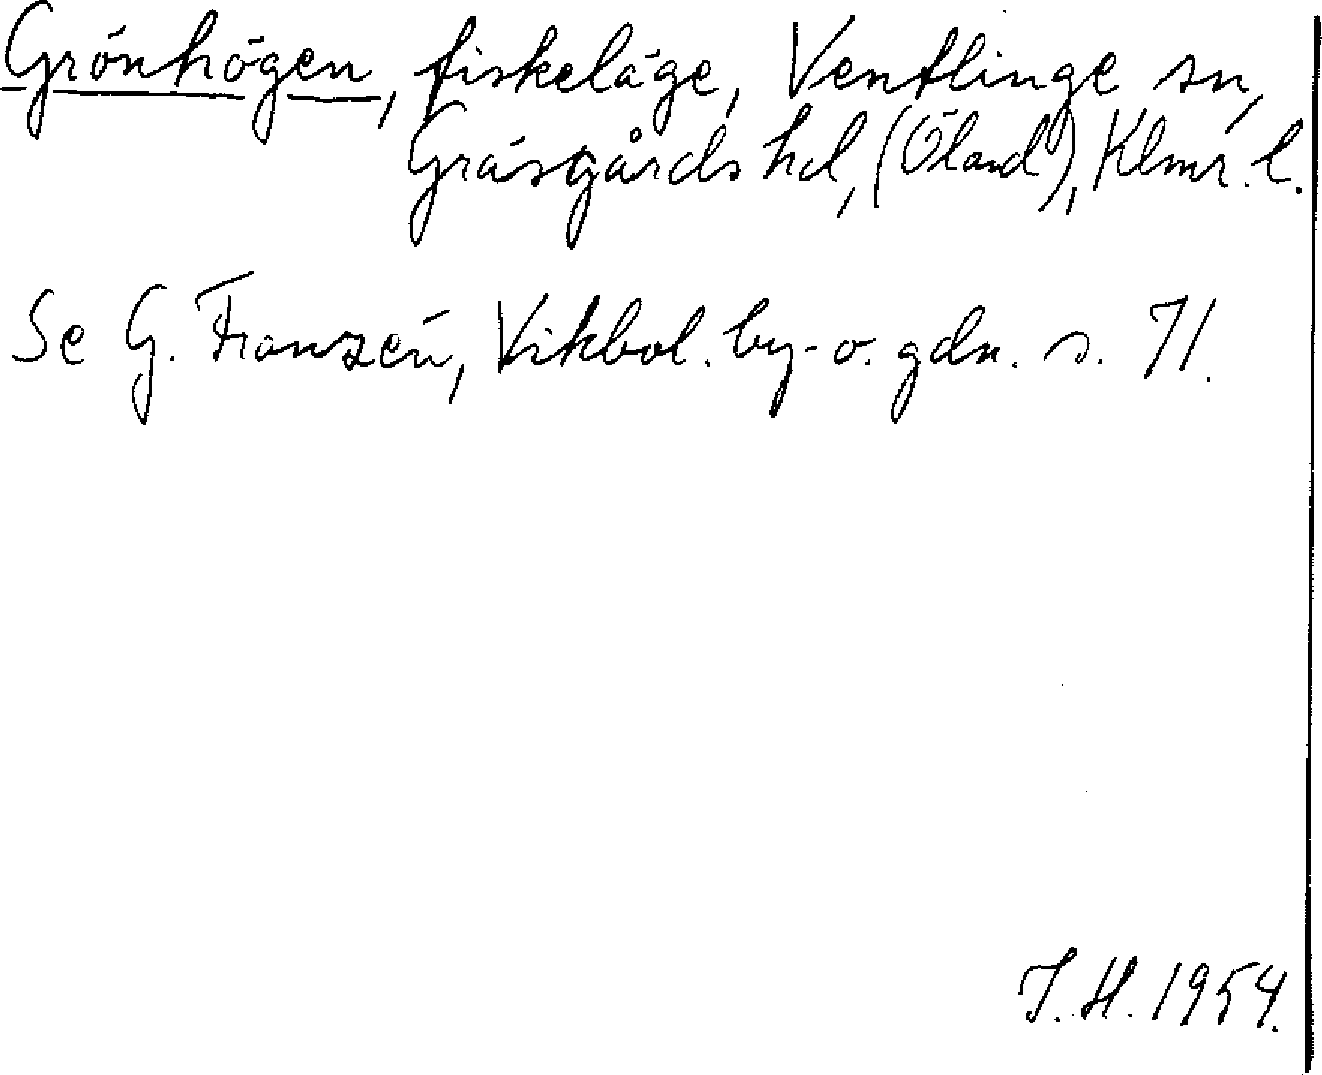 Grönhögen, fiskeläge, Ventlinge sn,
Gräsgårds hd, (Öland), Klmr. l.
Se G. Franzén, Vikbol. by- o. gdn. s. 71.
J. H. 1954.